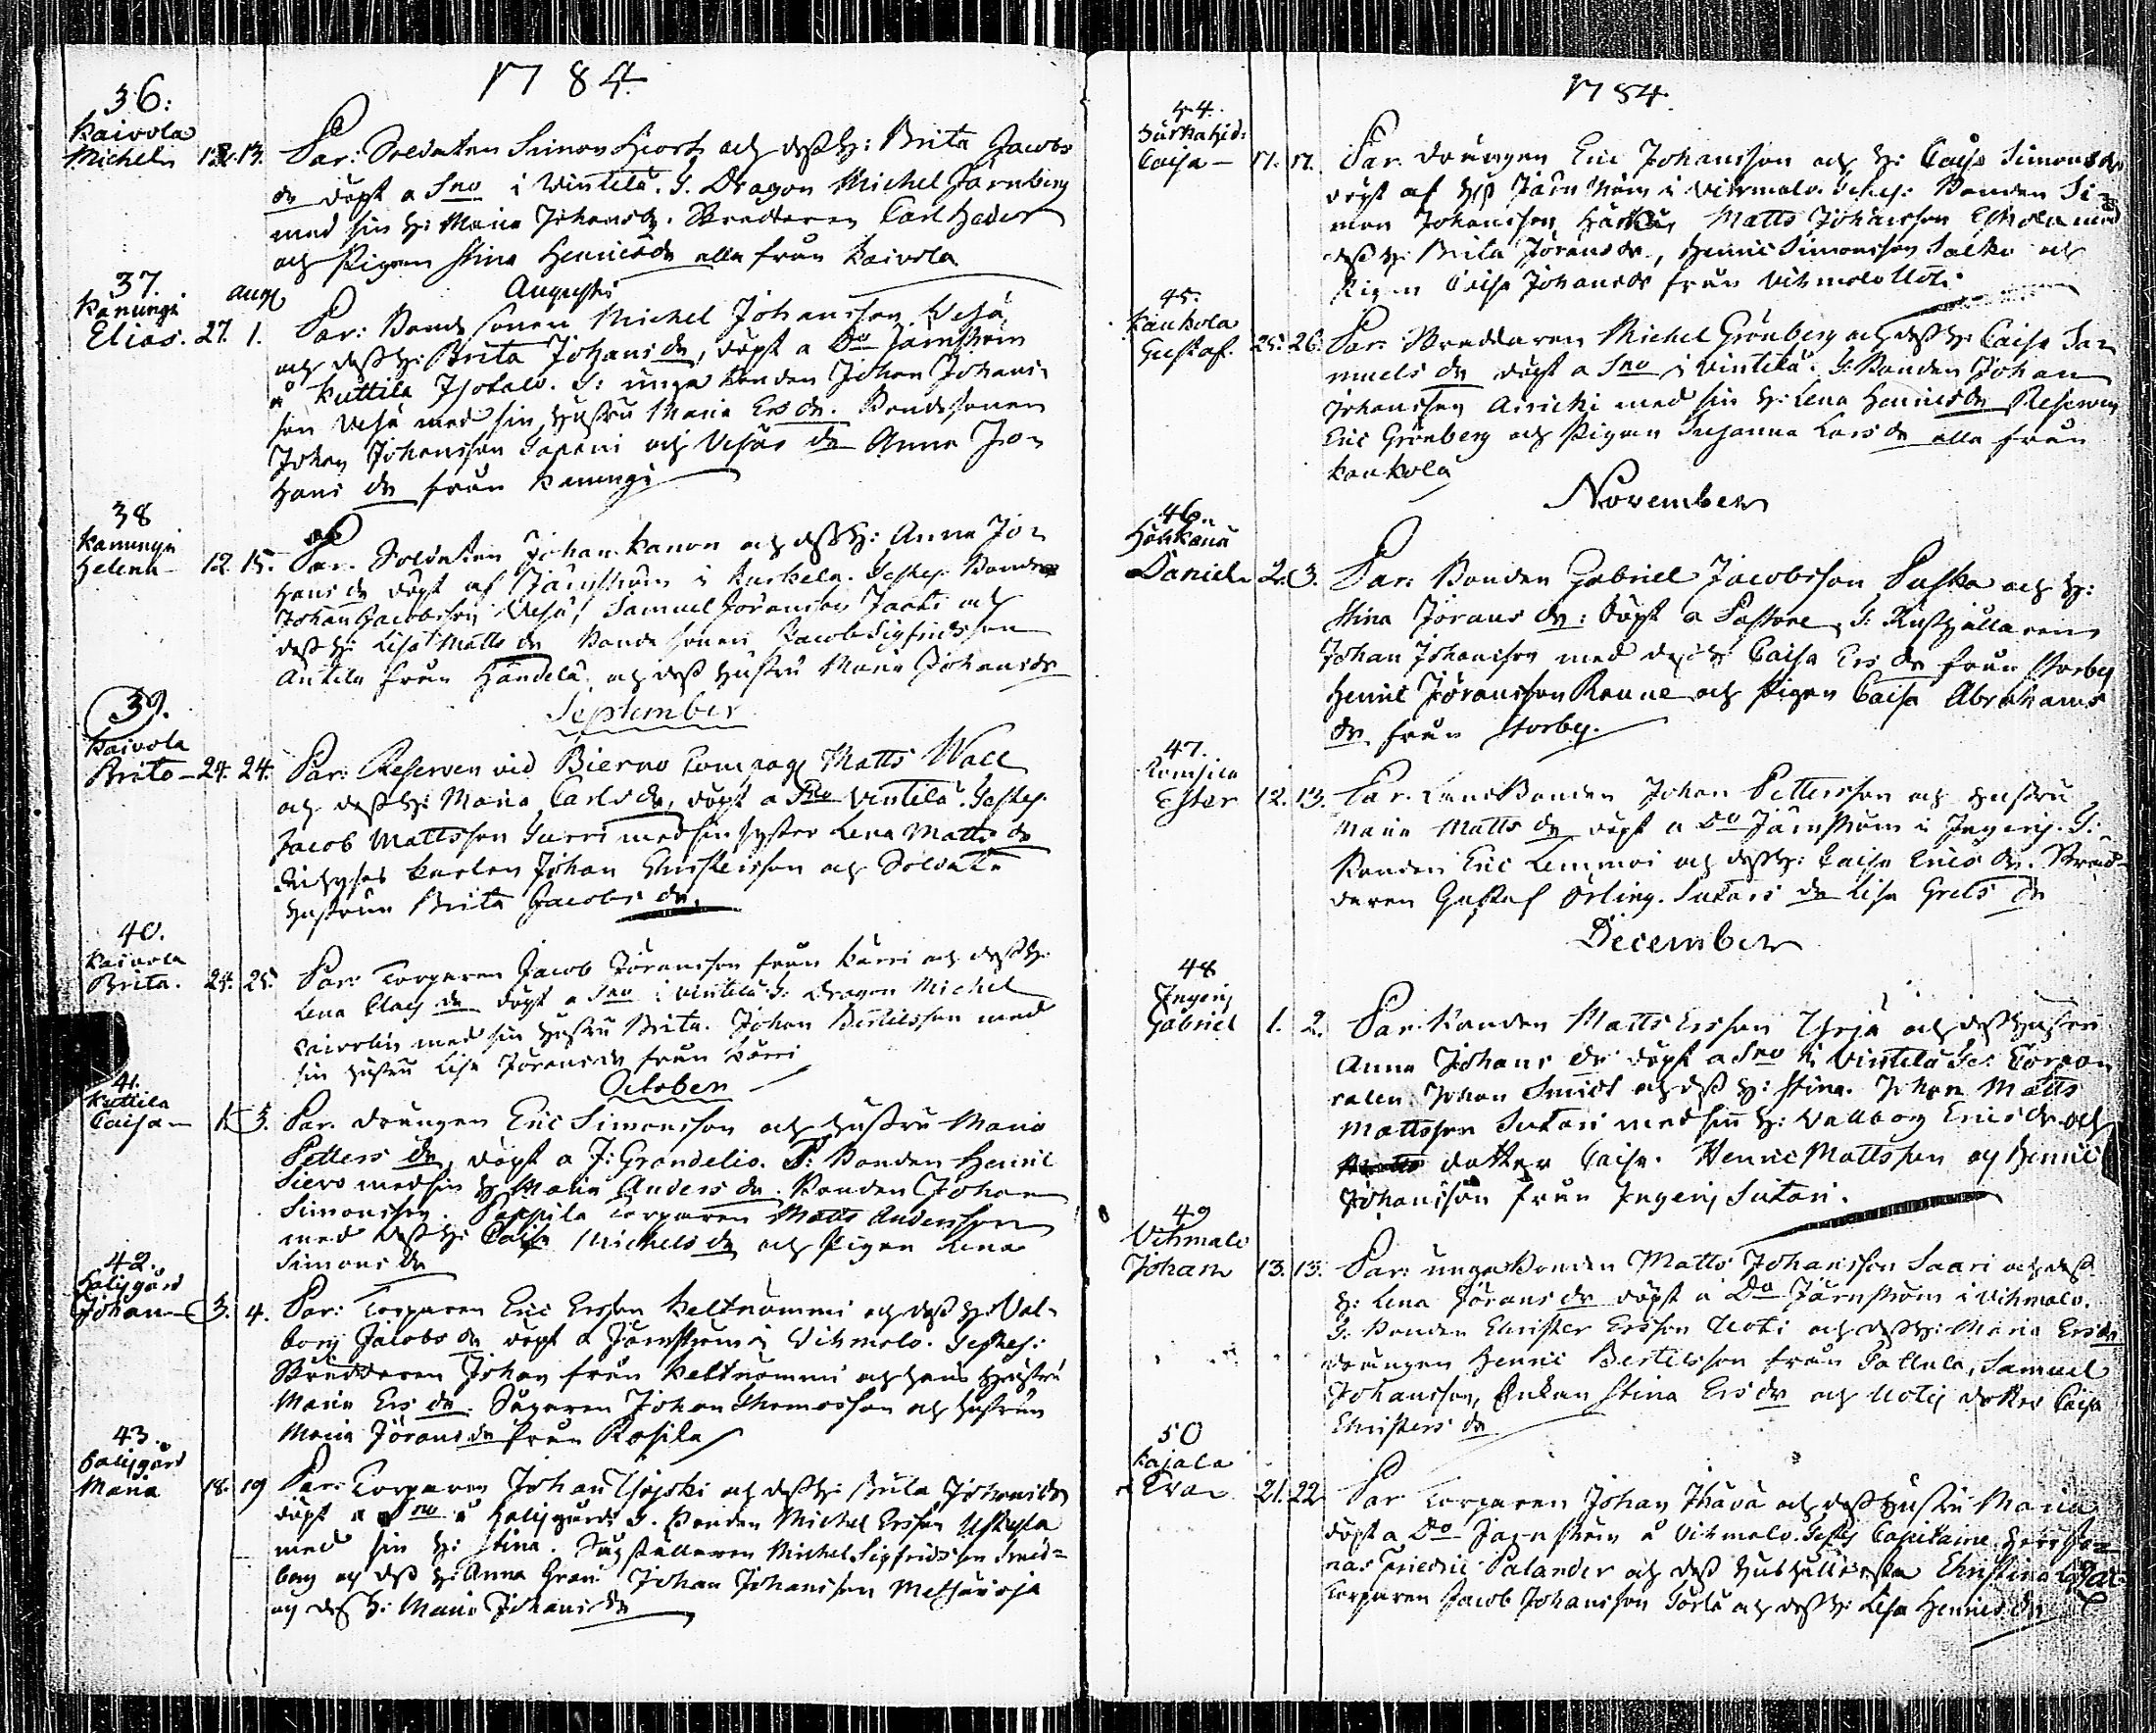 1784.
36:
Kaivola
Michel 12. 13. Par: Soldaten Simon Hiort och dess h: Brita Jacobs
dr döpt a Sno i Vintelä. G. Dragon Michel Järnberg
med sin h: Maria Johansdr. Skreddaren Carl
och Pigan Stina Henricsdr alla från Kaivola
37. Augusti
Kanungi
Elias. 27. 1. Par: Bonds sonen Michel Johansson Vesä
och dess h: Brita Johans dr, döpt a Do Järnström
i Kuttila Isotalo. G: unga bonden Johan Johans
son Vesä med sin hustru Maria Ers dr. Bondesonen
Johan Johansson och Vesäs dr Anna Jo-
hans dr från Kanungi
38
Kanungi
Helena 12. 15. Par. Soldaten Johan Kanon och dess h: Anna Jo-
hans dr döpt af Järnström i Karkela. Testes. Bonden
Johan Jacobsson Vesä, Samuel Göransson Jaati och
dess h: Lisa Matts dr Bonde sonen Jacob Sigfridsson
Antila från Händelä och dess hustru Maria Johansdr
September
39.
Kaivola
Brita 24. 24. Par: Reserven vid Bierno Compagn Matts Wall
och dess h: Maria Carlsdr, döpt a Sno Vintelä. Testes.
Jacob Mattsson med sin syster Lena Matts dr
karlen Johan Christersson och Soldats
hustrun Brita Jacobs dr.
40.
Kaivola
Brita. 24. 25. Par: Torparen Jacob Jöransson från Kärri och dess h:
Lena Claes dr döpt a Sno i Vintelä. G: Dragon Michel
Kaivolin med sin hustru Brita. Johan Bertilsson med
sin hustru Lisa Jöransdr från Kärri
October
41.
Kuttila
Caisa 1. 3. Par. drängen Eric Simonsson och hustru Maria
Petters dr, döpt a J: Grandelio. T: Bonden Henric
Sievo med sin h. Maria Anders dr. Bonden Johan
Simonsson. Torparen Matts Andersson
med dess h: Caisa Michels dr och Pigan Lena
Simons dr
42.
Johan 3. 4. Par: Torparen Eric Ersson Keltnummi och dess h: Val-
borg Jacobs dr döpt a Järnström i Vihmalo. Testes:
Skreddaren Johan från Keltnummi och hans hustru
Maria Ers dr. Sågaren Johan Thomasson och hustrun
Maria Jöransdr från Kosila
43.
Maria 18. 19 Par: Torparen Johan och dess h: Brita Johansdr
döpt a Sno å G. Bonden Michel Ersson
med sin h: Stina. Michel Sigfridsson Smed-
berg och dess h: Anna Gran. Johan Johansson Metsänoja
och dess h: Maria Johansdr
1784.
44.
Caisa 17. 17. Par. drängen Eric Johansson och h: Caisa Simonsdr
döpt af Hr Järnström i Vihmalo. Testes: Bonden Si-
mon Johansson Härkä, Matts Johansson med
dess h: Brita Jörans dr, Henric Simonsson Salko och
Pigan Caisa Johansdr från Vihmalo Uoti
45.
Kaukola
Gustaf. 25. 26. Par: Skreddaren Michel Grönberg och dess h: Caisa Sa-
muels dr döpt a Sno i Vintelä. G: Bonden Johan
Johansson Airicki med sin h: Lena Henricsdr Reserven
Eric Grönberg och Pigan Susanna Lars dr alla från
Kaukola
November
46.
Daniel 2. 3. Par: Bonden Gabriel Jacobsson Paska och h:
Stina Jörans dr: döpt a Pastore, T: Rusthållaren
Johan Johansson med dess h: Caisa Ers dr från Storby
Henric Jöransson Raune och Pigan Caisa Abrahams
dr från Storby.
47.
Romsila
Ester 12. 13. Par. Bonden Johan Pettersson och hustru
Maria Matts dr döpt a Do Järnström i Ingeris. G:
Bonden Eric Lemmoi och dess h: Caisa Erics dr. Skred-
daren Gustaf Örling. Sutars dr Lisa Grels dr
December
48
Ingeris
Gabriel 1. 2. Par. Bonden Matts Ersson Yrjä och dess hustru
Anna Johans dr döpt a Sno i Vintelä Ts: Corpo-
ralen Johan Smidt och dess h: Stina. Johan Matts
Mattsson Sutari med sin h: Vallborg Ericsdr och
dotter Caisa. Henric Mattsson och Henric
Johansson från Ingeris Sutari.
49
Vihmalo
Johan 13. 13. Par: unga bonden Matts Johansson Saari och dess
h: Lena Jörans dr döpt a Do Järnström i Vihmalo.
G. Bonden Christer Ersson Uoti och dess h: Maria Ersdr
drängen Henric Bertilsson från Pattula, Samuel
Johansson, Enkan Stina Ers dr och Uotis dotter Caisa
Christers dr
50
Kajala
Eva 21. 22 Par Torparen Johan Thava och dess hustru Maria
döpt a Do Järnström å Vihmalo. Testes Capitaine Herr Jo-
nas Friedric Palander och dess Hushållerska Christina
Torparen Jacob Johansson Törlä och dess h: Lisa Henricsdr